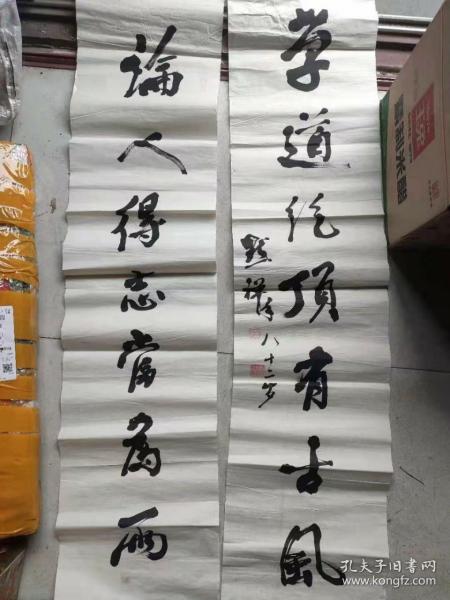 学道绝頂有古風
默禅年八十二岁
論人得志當為雨
孔夫子旧书网
www.kongfz.com